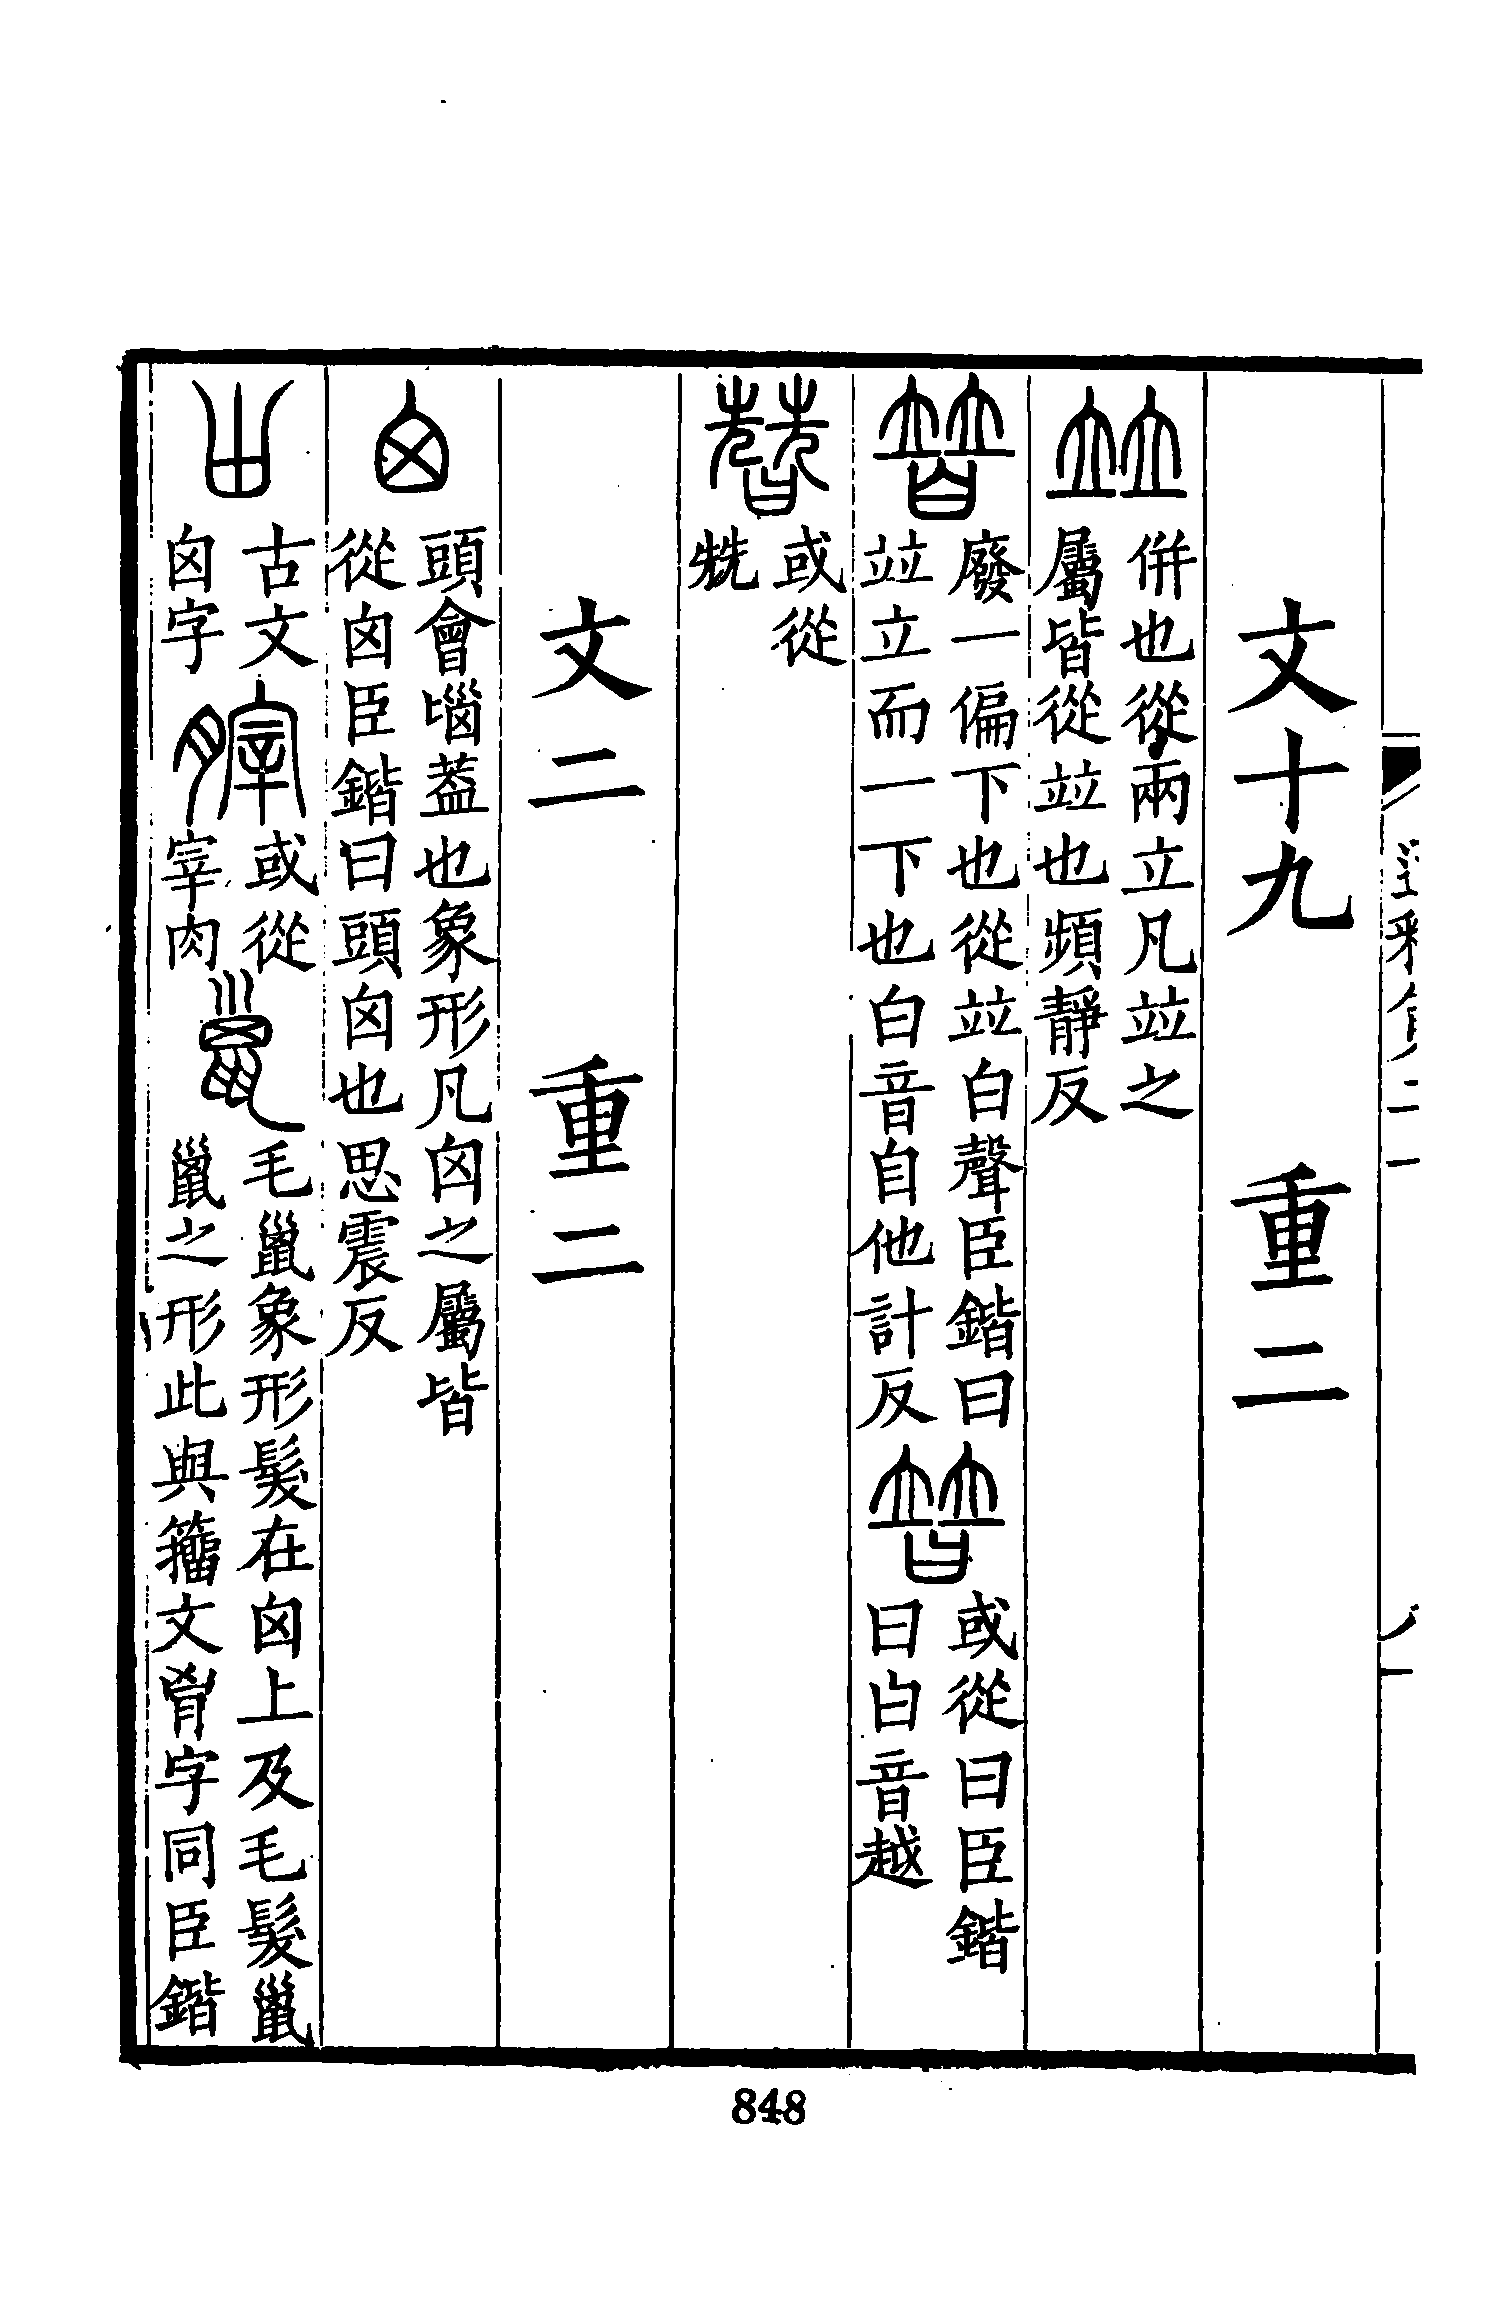 文十九 重二
竝 併也從兩立凡竝之
屬皆從竝也頻靜反
㬱 廢一偏下也從竝白聲臣鍇曰
竝立而一下也白音自他計反
暜 或從曰臣鍇
曰曰音越
朁 或從
兟
文二 重二
囟 頭會𡿺葢也象形凡囟之屬皆
從囟臣鍇曰頭囟也思震反
𠙷 古文
囟字
𦞤 或從
宰肉
巤 毛巤象形髮在囟上及毛髮巤
巤之形此與籒文𩠐字同臣鍇
848